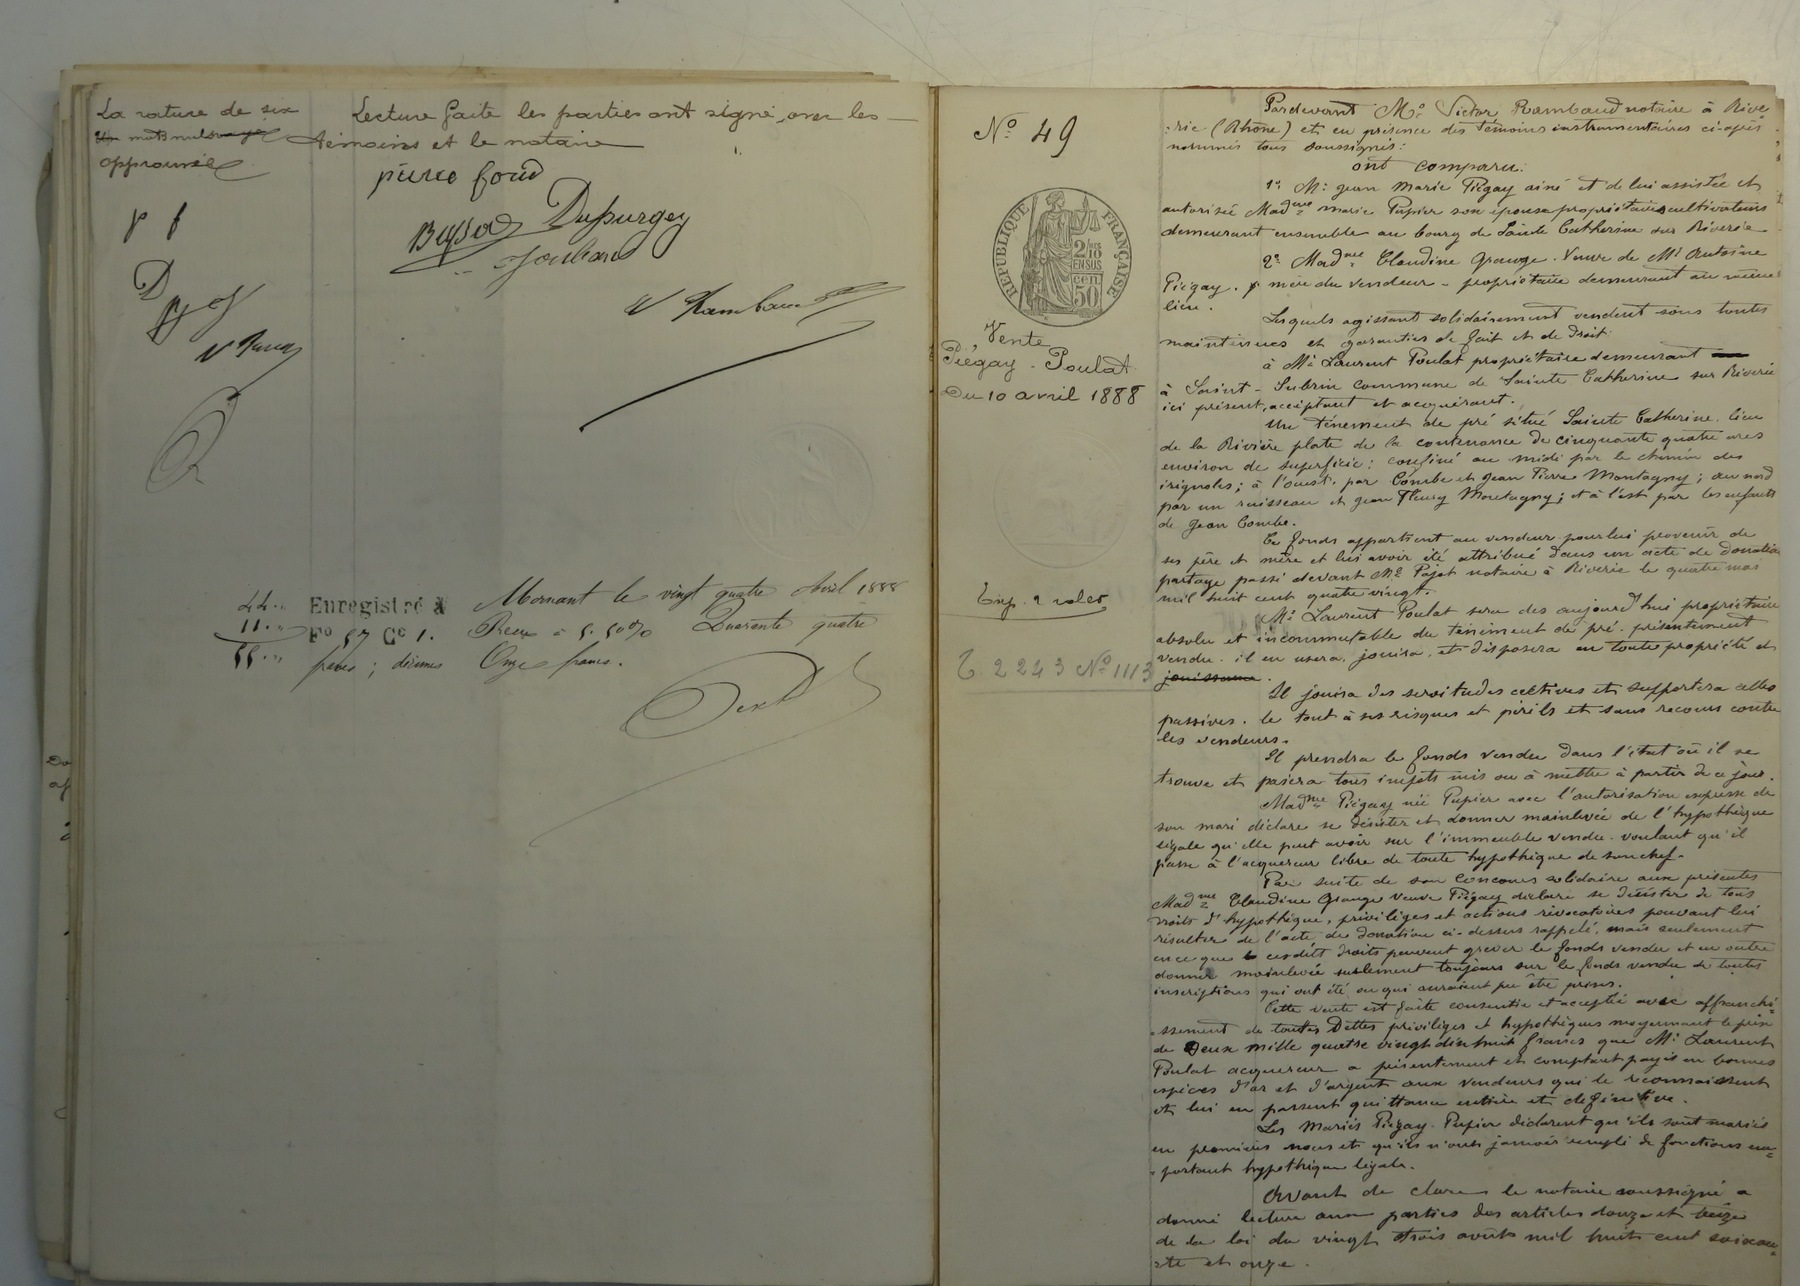 La rature de six
mots nuls
approuvée
Lecture faite les parties ont signé, avec les
témoins et le notaire
pierre foud
Dupurgey
V Rambaud
44 "
11 "
55 "
Enregistré à Mornant le vingt quatre Avril 1888
Fo 57 Ce 1. Reçu à 5.50% Quarante quatre
francs ; décimes Onze francs.
No 49
REPUBLIQUE FRANÇAISE
2/10
EN SUS
50
Vente
Piégay - Poulat
Du 10 avril 1888
Exp. 2 roles
T. 2243 No 1113
Pardevant Me Victor Rambaud notaire à Rive
-rie (Rhône) et en présence des témoins instrumentaires ci-après
nommés tous soussignés:
ont comparu:
1o Mr Jean Marie Piégay ainé et de lui assistée et
autorisée Madme Marie Pupier son épouse propriétaires cultivateurs
demeurant ensemble au bourg de Sainte Catherine sur Riverie
2o Madme Claudine Grange. Veuve de Mr Antoine
Piégay. mère du vendeur - propriétaire demeurant au même
lieu.
Lesquels agissant solidairement vendent sous toutes
maintenues et garanties de fait et de droit
à Mr Laurent Poulat propriétaire demeurant
à Saint - Subrin commune de Sainte Catherine sur Riverie
ici présent, acceptant et acquérant.
Un ténement de pré situé Sainte Catherine. lieu
de la Rivière plate de la contenance de cinquante quatre ares
environ de superficie; confiné au midi par le chemin des
irignoles; à l'ouest. par Combe et Jean Pierre Montagny; au nord
par un ruisseau et Jean Fleury Montagny; et à l'est par les enfants
de Jean Combe.
Ce fonds appartient au vendeur pour lui provenir de
ses père et mère et lui avoir été attribué dans un acte de donation
partage passé devant Me Pajot notaire à Riverie le quatre mai
mil huit cent quatre vingt.
Mr Laurent Poulat sera des aujourd'hui propriétaire
absolu et incommutable du téniment de pré. présentement
vendu. il en usera, jouira, et disposera en toute propriété et
jouissance.
Il jouira des servitudes actives et supportera celles
passives. le tout à ses risques et périls et sans recours contre
les vendeurs.
Il prendra le fonds vendu dans l'état où il se
trouve et paiera tous impots mis ou à mettre à partir de ce jour.
Madme Piégay née Pupier avec l'autorisation expresse de
son mari déclare se désister et donner mainlevée de l'hypothèque
légale qu'elle peut avoir sur l'immeuble vendu. voulant qu'il
passe à l'acquereur libre de toute hypothèque de son chef.
Par suite de son concours solidaire aux présentes
Madme Claudine Grange veuve Piégay déclare se désister de tous
droits d'hypothèque, priviléges et actions révocatoires pouvant lui
résulter de l'acte de donation ci-dessus rappelé, mais seulement
en ce que cesdits droits peuvent grever le fonds vendu et en outre
donner mainlevée seulement toujours sur le fonds vendu de toutes
inscriptions qui ont été ou qui auraient pu être prises.
Cette vente est faite consentie et acceptée avec affranchi-
-ssement de toutes dettes priviléges et hypothèques moyennant le prix
de Deux mille quatre vingt dix huit francs que Mr Laurent
Poulat acquereur a présentement et comptant payés en bonnes
espèces d'or et d'argent aux vendeurs qui le reconnaissent
et lui en passent quittance entière et définitive.
Les Mariés Piégay - Pupier déclarent qu'ils sont mariés
en premières noces et qu'ils n'ont jamais rempli de fonctions em-
-portant hypothèque légale.
Avant de clore le notaire soussigné a
donné lecture aux parties des articles douze et treize
de la loi du vingt trois août mil huit cent soixan-
-te et onze.